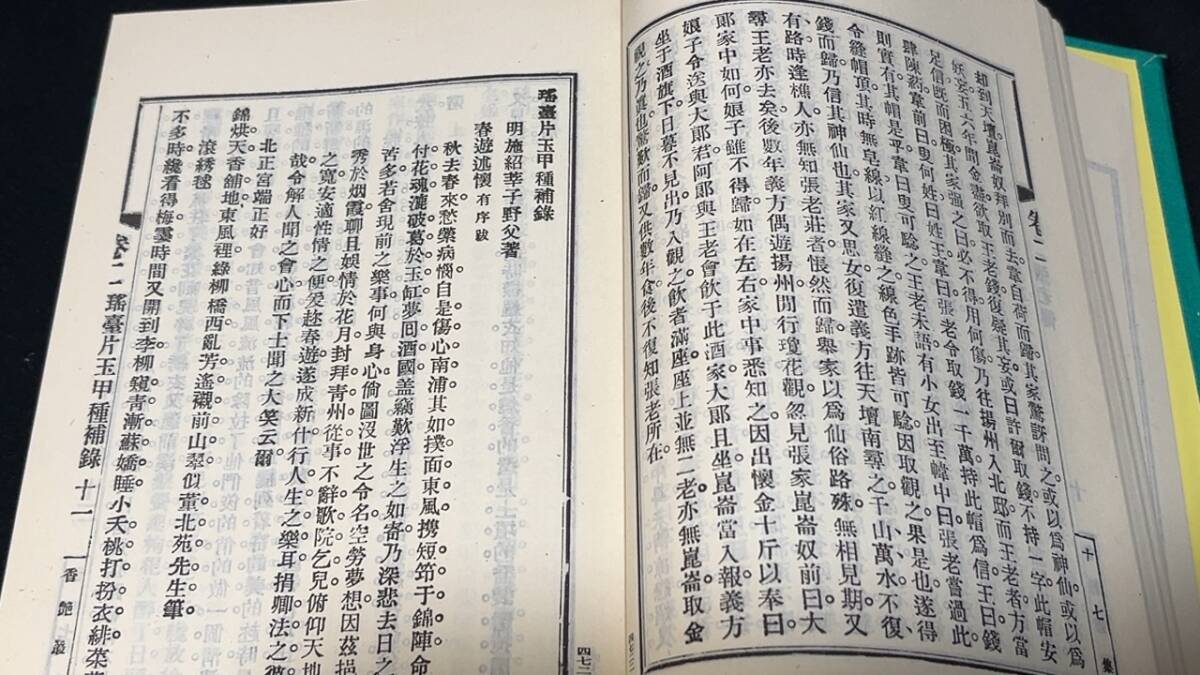 却到天壇崑崙奴拜別而去韋自荷而歸其家驚訝問之或以爲神仙或以爲
妖妄五六年間金盡欲取王老錢復疑其妄或曰許爾取錢不持一字此帽安
足信既而困極其家強之曰必不得用何傷乃往揚州入北邸而王老者方當
肆陳葯韋前曰叟何姓曰姓王韋曰張老令取錢一千萬持此帽爲信王曰錢
則實有其帽是乎韋曰叟可驗之王老未語有小女出至幃中曰張老嘗過此
令縫帽頂其時無皂線以紅線縫之線色手跡皆可驗因取觀之果是也遂得
錢而歸乃信其神仙也其家又思女復遣義方往天壇南尋之千山萬水不復
有路時逢樵人亦無知張老莊者悵然而歸舉家以爲仙俗路殊無相見期又
尋王老亦去矣後數年義方偶遊揚州閒行瓊花觀忽見張家崑崙奴前曰大
郎家中如何娘子雖不得歸如在左右家中事悉知之因出懷金十斤以奉曰
娘子令送與大郎君阿郎與王老會飲于此酒家大郎且坐崑崙當入報義方
坐于酒旗下日暮不見出乃入觀之飲者滿座座上並無二老亦無崑崙取金
觀之乃眞也驚歎而歸又供數年食後不復知張老所在
瑤臺片玉甲種補錄
明施紹莘子野父著
春遊述懷有序跋
秋去春來愁藥病惱自是傷心南浦其如撲面東風携短筇于錦陣命
付花魂漉破葛於玉缸夢回酒國蓋竊歎浮生之如寄乃深悲去日之
苦多若舍現前之樂事何與身心倘圖沒世之令名空勞夢想因茲挹
秀於烟霞聊且娛情於花月封拜靑州從事不辭歌院乞兒俯仰天地
之寬安適性情之便爰趂春遊遂成新什行人生之樂耳捐卿法之
哉令解人聞之會心而下士聞之大笑云爾
北正宮端正好
錦烘天香舖地東風裡綠柳橋西亂芳遙襯前山翠似董北苑先生筆
滾綉毬
不多時纔看得梅雪時間又開到李柳窺靑漸蘇嬌睡小夭桃打扮衣緋菜
卷二瑤臺片玉甲種補錄 十一 香艶叢